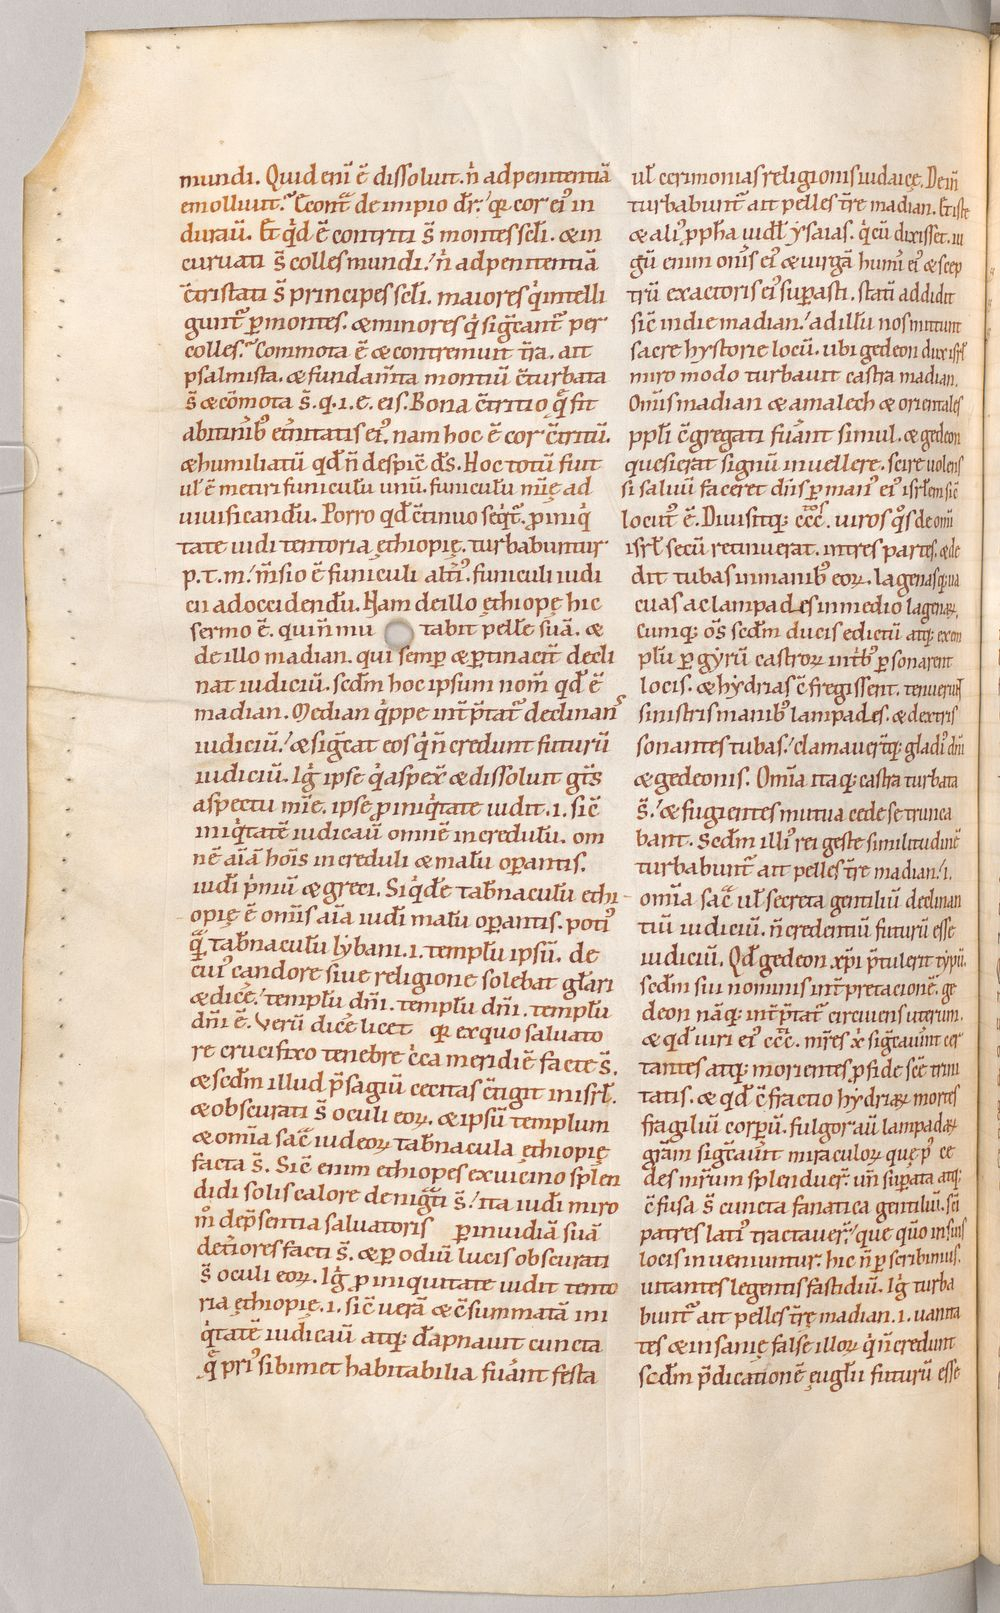 mundi. Quid enī ē dissoluit. n̄ ad penitentiā
emolliuit. Econt̄ de impio dr̄. qr cor ei' in
durau̅. Et qd ē contriti s̄ montes scl̄i. & in
curuati s̄ colles mundi. n̄ ad penitentiā
c̄tristati s̄ principes scl̄i. maiores q̇ intelli
gunt̄ p montes. & minores q̇ sigc̄ant̄ per
colles. Commota ē & contremuit t̄ra. ait
psalmista. & fundam̄ta montiū c̄turbata
s̄ & cōmota s̄. q. i. ē. eis. Bona c̄tritio q̄ fit
ab itinib' et̄nitatis ei'. nam hoc ē cor c̄tritū.
& humiliatū qd n̄ despic̄ d̄s. Hoc totū fuit
ul ē metiri funiculu̅ unū. funiculu̅ mīę ad
uiuificandu̅. Porro qd c̄tinuo seqt̄. p iniq̇
tate uidi tentoria ęthiopię. turbabuntur
p. t. m. m̄sio ē funiculi alt̄i'. funiculi iudi
cii ad occidendu̅. Nam de illo ęthiopę hic
sermo ē. qui n̄ mu tabit pelle̅ suā. &
de illo madian. qui semp & ptinacit̄ decli
nat iudiciū. scdm̄ hoc ipsum nom̄ qd ē
madian. Median q̇ppe int̄ptat̄ declinans
iudiciū. & sigc̄at eos q̇ n̄ credunt futurū
iudiciū. Iḡ ipse q̇ aspex̄ & dissoluit gt̄s
aspectu mīę. ipse p iniqtate uidit. i. sic̄
iniqtatē iudicau̅ omnē incredulu̅. om
nē aīā hoīs increduli & malu̅ opantis.
iudi̅ p̄miu̅ & greci. Siqde̅ tabn̄aculu̅ ethi
opię ē om̄is aīa iudi̅ malu̅ opantis. poti'
q̄. tabn̄aculu̅ lẏbani. i. templu̅ ipsu̅. de
cui' candore siue religione solebat gl̄ari
& dice̅. templu̅ dn̄i. templu̅ dn̄i. templu̅
dn̄i ē. Veru̅ dice̅ licet qr ex quo saluato
re crucifixo tenebre c̄ca meridie̅ facte s̄.
& scdm̄ illud p̄sagiū cecitas c̄tigit in isrl̄.
& obscurati s̄ oculi eoꝝ. & ipsu̅ templum
& om̄ia sac̄ iudeoꝝ tabn̄acula ęthiopię
facta s̄. Sic̄ enim ethiopes ex uicino splen
didi solis calore denigti s̄. ita iudi̅ miro
m̊ dep̄sentia saluatoris p inuidiā suā
det̄iores facti s̄. & p odiū lucis obscurati
s̄ oculi eoꝝ. Iḡ p iniquitate uidit tento
ria ęthiopię. i. sic̄ uerā & c̄summatā ini
qtatē iudicau̅ atq; dāpnauit cuncta
q̄ pri' sibimet habitabilia fu̅ant festa
ul̄ cerimonias religionis iudaicę. Dein̄
turbabunt̄ ait pelles t̄re madian. Et iste
& ali' pp̄ha uidl̄ ẏsaias. q̇ cū dixisset. iu
gū enim on̄is ei' & uirgā hum̄i ei' & scep
trū exactoris ei' supasti. statī addidit
sic̄ in die madian. ad illū nos mittunt
sacre hẏstorie locū. ubi gedeon dux isrl̄
miro modo turbauit castra madian.
Om̄is madian & amalech & orientales
ppl̄i c̄gregati fu̅ant simul. & gedeon
quesierat signū in uellere. scire uolens
si saluū faceret dn̄s p man' ei' isrl̄em sic̄
locut' ē. Diuisitq; ccc̄tos. uiros q̊s de om̄i
isrl̄ secū retinuerat. in tres partes. & de
dit tubas in manib' eoꝝ. lagenasq; ua
cuas ac lampades in medio lagenaꝝ.
cumq; om̄s scdm̄ ducis edictū atq; exem
plū p gẏrū castroꝝ int̄b' psonarent
locis. & hẏdrias c̄fregissent. tenuerunt
sinistris manib' lampades. & dextris
sonantes tubas. clamauer̄tq; gladi' dn̄i
& gedeonis. Om̄ia itaq; castra turbata
s̄. & fugientes mutua cede se trunca
bant. Scdm̄ illi' rei geste similitudinē
turbabunt̄ ait pelles t̄re madian. i.
om̄ia sac̄ ul̄ secreta gentiliū declinan
tiū iudiciū. n̄ credentiū futurū esse
iudiciū. Qd̄ gedeon xp̄i p̄tulerit tẏpū.
scdm̄ sui nominis int̄pretacionē. ge
deon nāq; int̄ptat̄ circuiens uterum.
& qd uiri ei' ccc̄. mr̄es x̄ sigc̄auer̄nt cer
tantes atq; morientes p fide sc̄e trini
tatis. & qd c̄fractio hẏdriaꝝ mortes
fragiliū corpū. fulgor au̅ lampadaꝝ
gr̄am sigc̄auit miraculoꝝ quę p' ce
des mr̄um splenduer̄. un̄ supata atq;
c̄fusa s̄ cuncta fanatica gentiliū. sc̄i
patres lati' tractauer̄. que qm̄o in suis
locis inueniuntur. hic n̄ pscribimus.
uitantes legentis fastidiū. Iḡ turba
bunt̄ ait pelles t̄rę madian. i. uanita
tes & insanię false illoꝝ q̇ n̄ credunt
scdm̄ p̄dicationē ęuglīi futurū esse